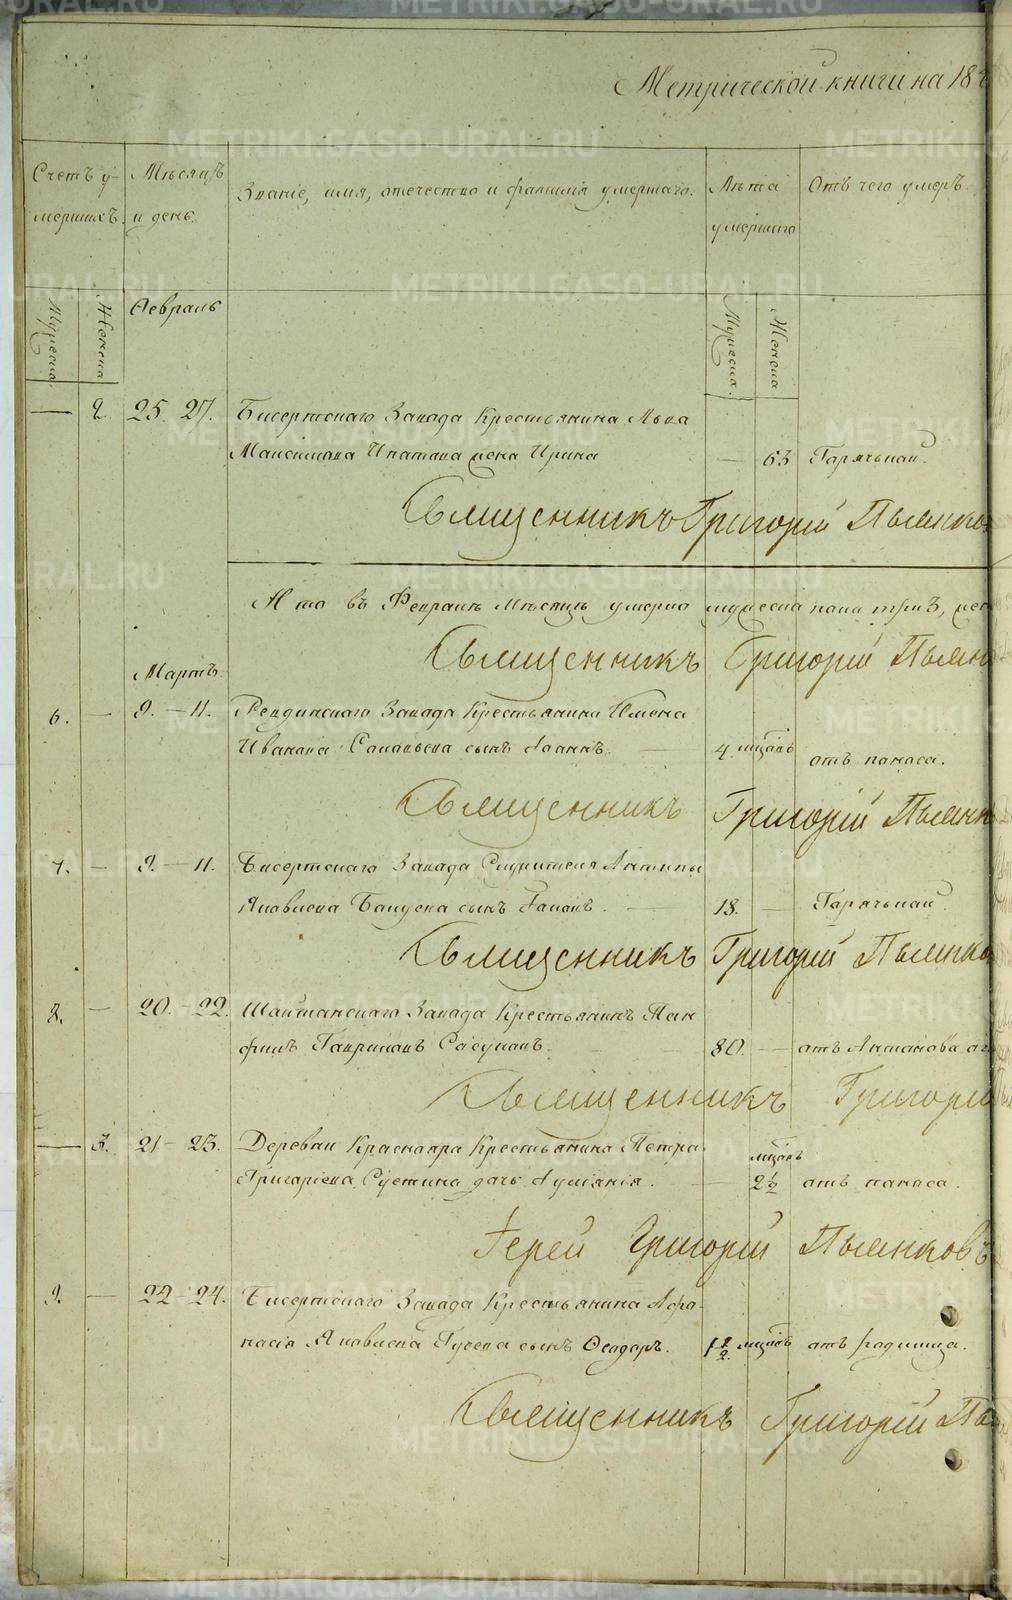 Метрической книги на 18
Счетъ у-
мершихъ.
Мѣсяцъ
и день.
Званіе, имя, отечество и фамилія умершаго.
Лѣта
умершаго
Отъ чего умеръ.
Мужеска
Женска
Февраль
Мужеска.
Женска
— 2. 25. 27. Бисертскаго Завода Крестьянина Льва
Максимова Ипатова жена Ирина — 63 Горячькой.
Священникъ Григорій Пьянков
Итого въ Февралѣ мѣсяцѣ умерло мужеска пола три,
Священникъ Григорій Пьян
Мартъ.
6. — 9. — 11. Ревдинскаго Завода Крестьянина
Иванова сынъ Іоаннъ. — 4 мѣсяцъ отъ поноса.
Священникъ Григорій Пьянк
7. — 9. — 11. Бисертскаго Завода Служителя Антипы
Яковлева сынъ — 18. — Горячькой.
Священникъ Григорій Пьянко
8. — 20. — 22. Шайтанскаго Завода Крестьянинъ Пан
филъ Гавриловъ 80. — отъ Антонова ог
Священникъ Григорі
— 3. 21 — 23. Деревни Краснояра Крестьянина Петра
Григоріева дочь — 2½ мѣсяцъ отъ поноса.
Іерей Григорій Пьянковъ
9. — 22 — 24. Бисертскаго Завода Крестьянина Афо-
насія Яковлева Гусева сынъ Феодоръ. 1½ мѣсяцъ отъ родимца.
Священникъ Григорій Пь
METRIKI.GASO-URAL.RU